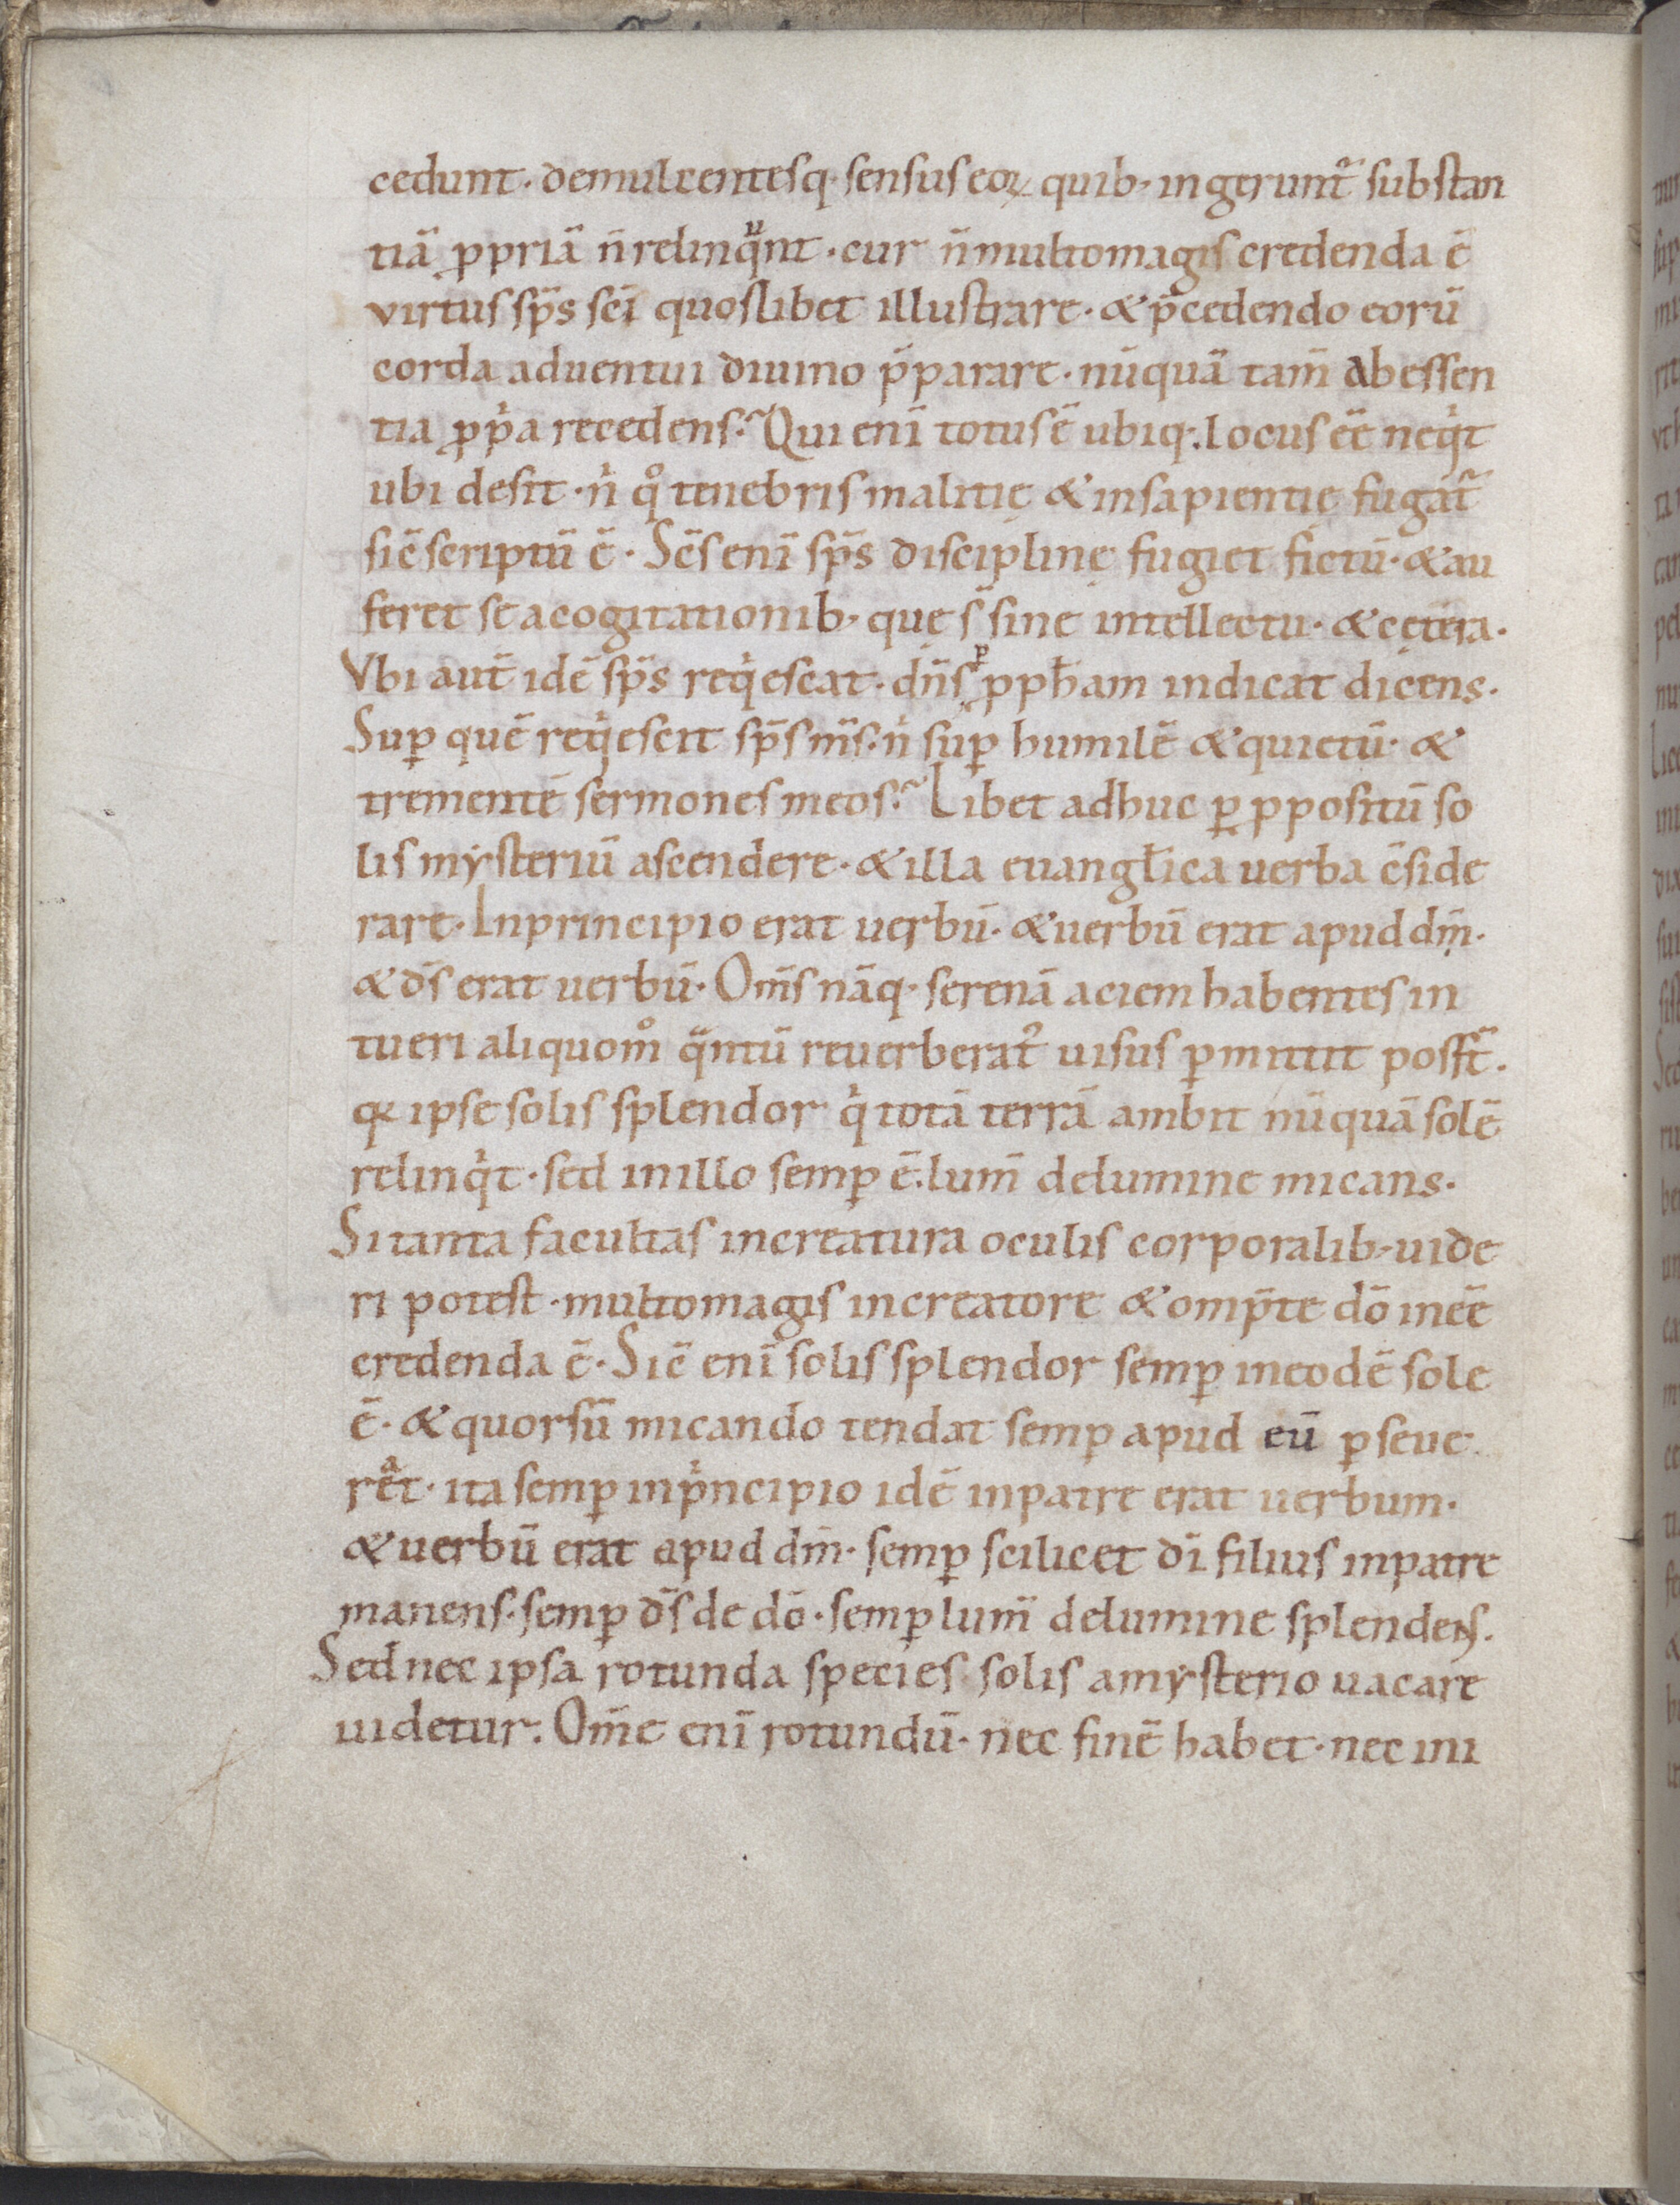 cedunt· demulcentesq· sensus eoꝝ quib; ingerunt᷑ substan
tiā ꝓpriā n̄ relinqͧnt· cur n̄ multo magis credenda ē
virtus sp̄s sc̄i quoslibet illustrare· & p̄cedendo eorū
corda aduentui diuino p̄parare· nūquā tam̄ ab essen
tia ꝓpͥa recedens? Qui eni᷑ totus ē ubiq·. locus ēē neqͥt
ubi desit· nͥ qͦ tenebris malitię & insapientię fugat᷑
sic̄ scriptū ē· Sc̄s eni᷑ sp̄s disciplinę fugiet fictū· & au
feret se a cogitationib; quę s̄ sine intellectu· & cętera·
Vbi aut̄ idē sp̄s reqͥescat· dn̄s p ꝓph̄am indicat dicens·
Suꝑ quē reqͥescit sp̄s m̄s· nͥ suꝑ humilē & quietū· &
trementē sermones meos? Libet adhuc ꝑ ꝓpositū so
lis mẏsteriū ascendere· & illa euangl̄ica uerba c̄side
rare· In principio erat uerbū· & uerbū erat apud dm̄·
& ds̄ erat uerbū· Om̄s nāq· serenā aciem habentes in
tueri aliquomͦ qͣntū reuerberat᷑ uisus ꝑmittit posst̄·
qꝛ ipse solis splendor qͥ totā terrā ambit nūquā solē
relinqͥt· sed in illo semꝑ ē·. lum̄ de lumine micans·
Si tanta facultas in creatura oculis corporalib; uide
ri potest· multo magis in creatore & omp̄te dō inēē
credenda ē· Sic̄ eni᷑ solis splendor semꝑ in eodē sole
ē· & quorsū micando tendat semꝑ apud eū ꝑseue
reͣt· ita semꝑ in pͥncipio idē in patre erat uerbum·
& uerbū erat apud dm̄· semꝑ scilicet dī filius in patre
manens· semꝑ ds̄ de dō· semꝑ lum̄ de lumine splendens·
Sed nec ipsa rotunda species solis a mẏsterio uacare
uidetur·. Om̄e eni᷑ rotundū· nec finē habet· nec ini